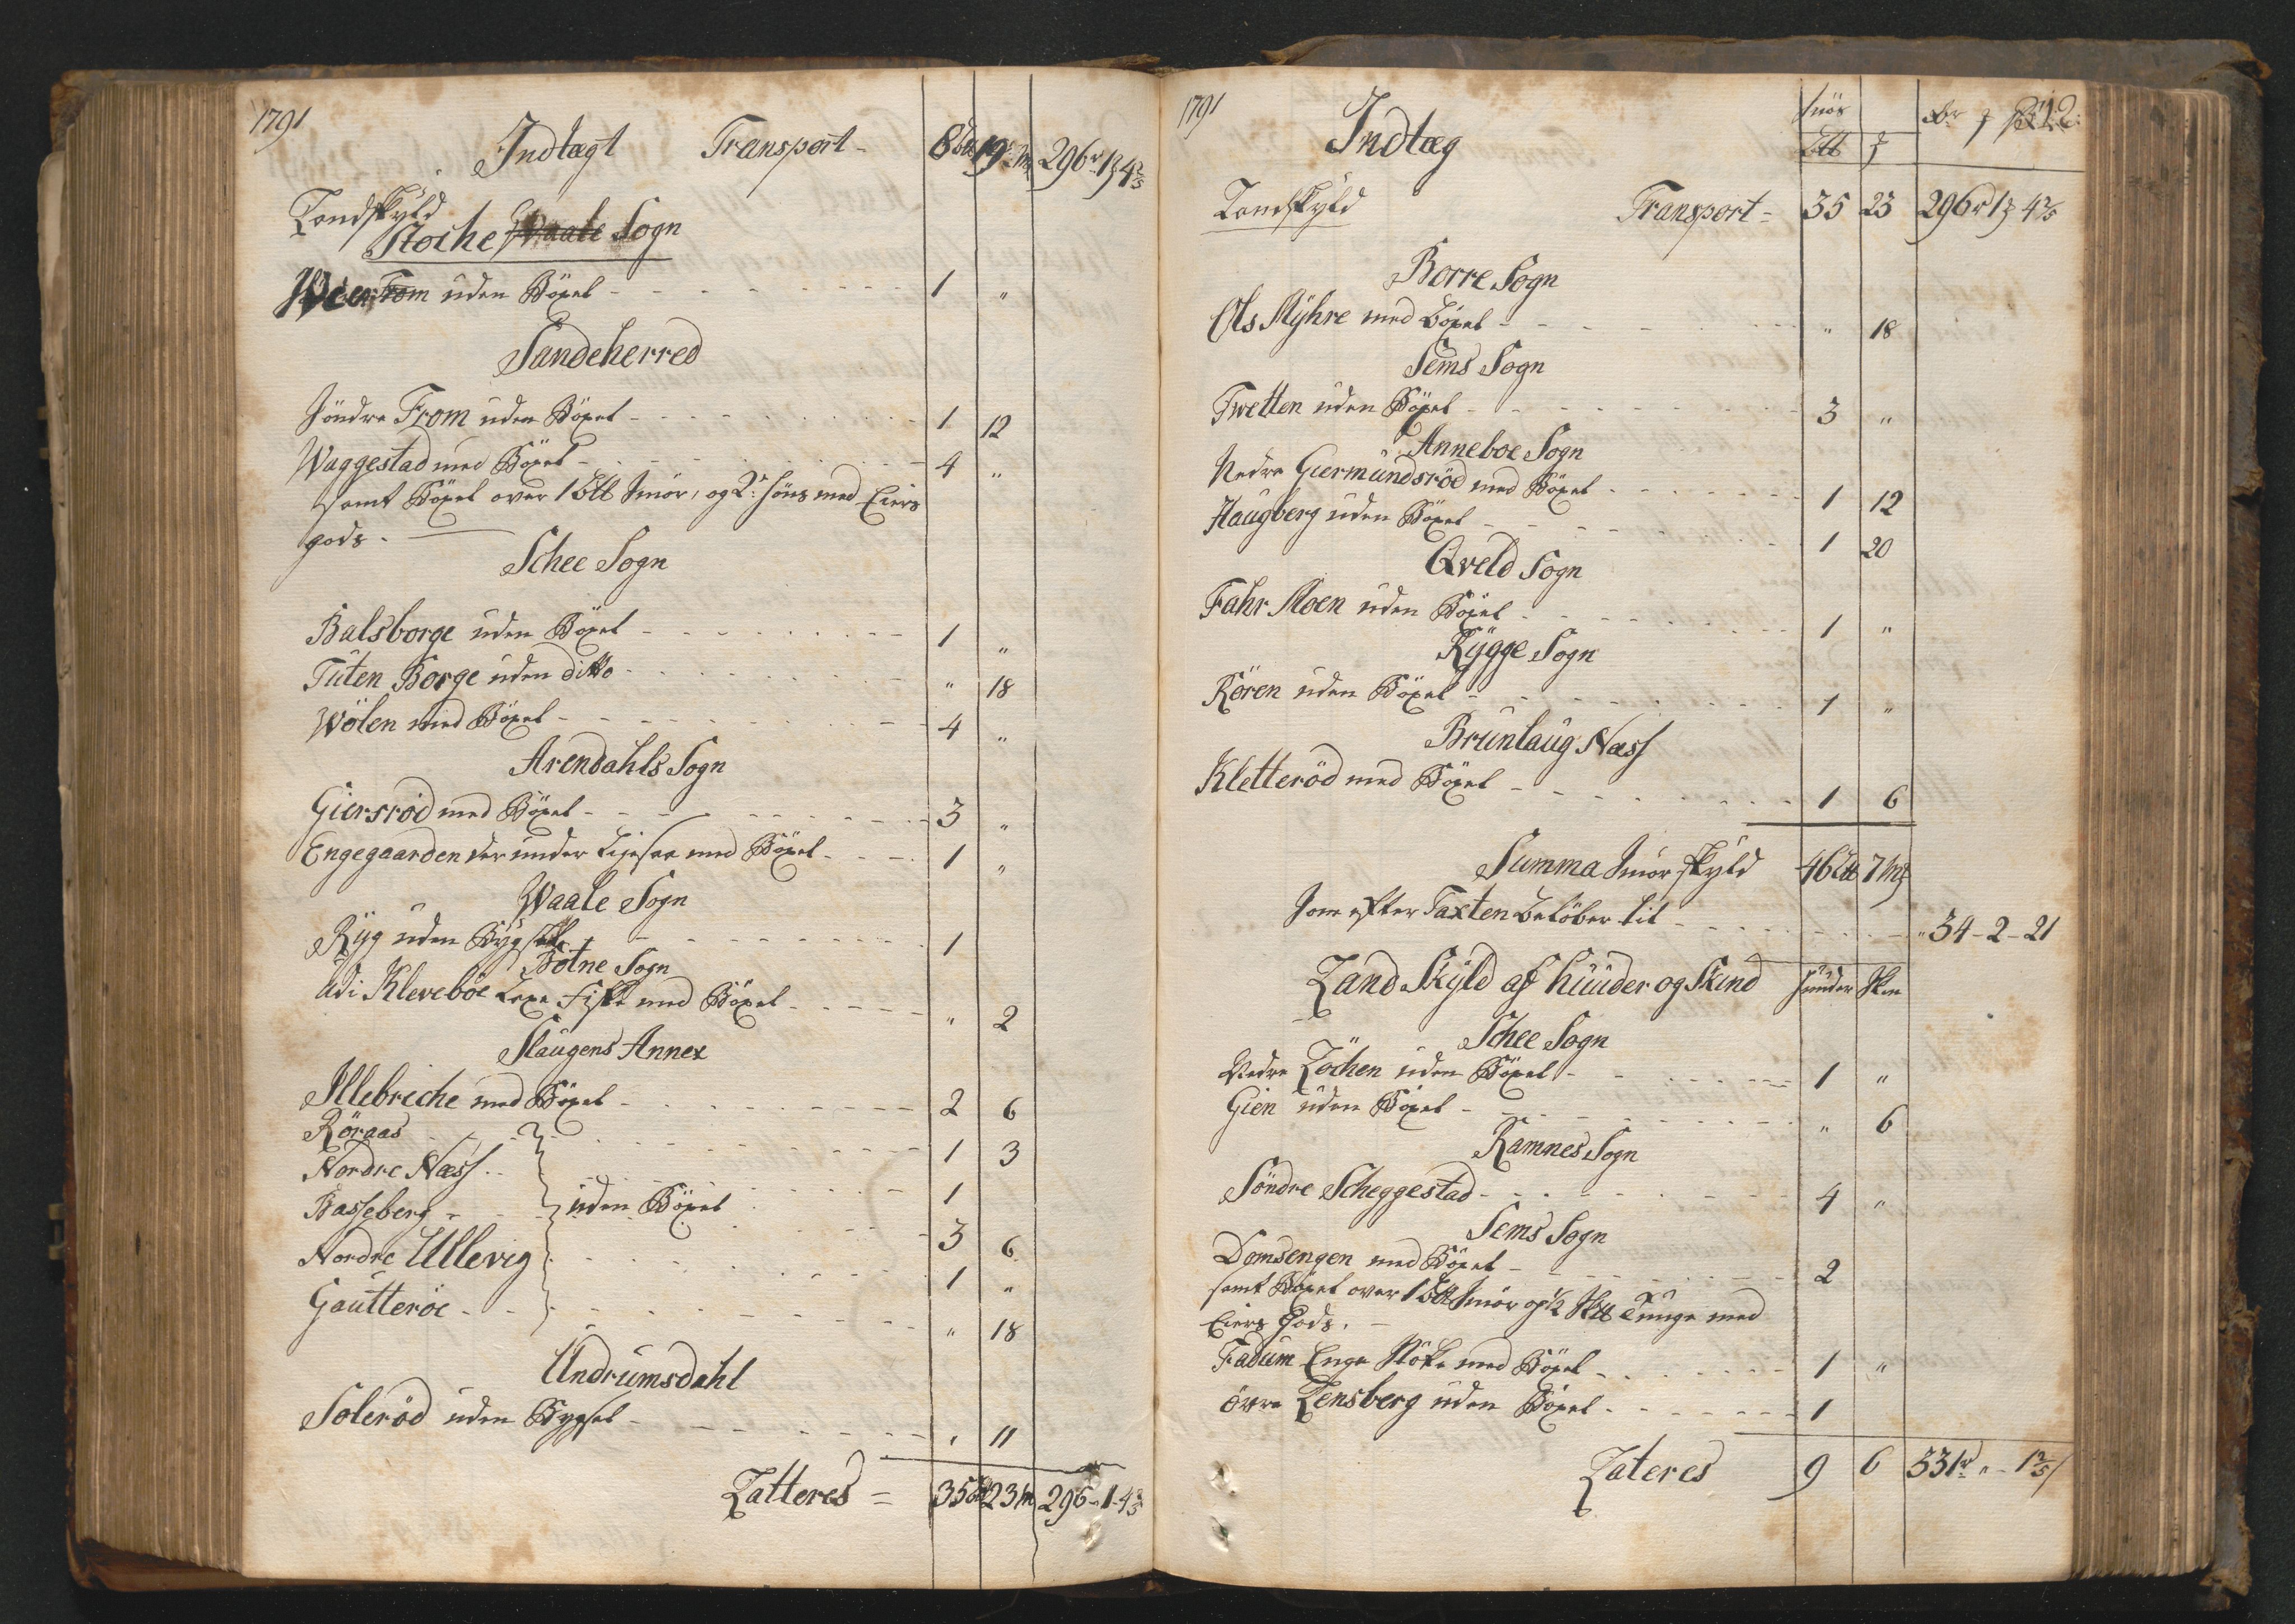 1791
Indtægt Transport - 8 19 296 1 4 2/5
Landskyld
Stoche Waale Sogn
From uden Böxel - 1 "
Sandeherred
Söndre From uden Böxel - 1 12
Waggestad med Böxel - 4 "
samt Böxel over 1 Smör, og 2de Höns med Eiers
gods. -
Schee Sogn
Balsborge uden Böxel - 1 "
Tuten Borge uden ditto - " 18
Wölen med Böxel - 4 "
Arendahls Sogn
Giersröd med Böxel - 3 "
Engegaarden der under med Böxel - 1 "
Waale Sogn
Ryg uden Bygsel - 1
Botne Sogn
udi Kleveböe Laxe Fiske med Böxel - " 2
Slaugens Annex
Illebreche med Böxel - 2 6
Röraas - 1 3
Nordre Næss - 1
Basseberg - uden Böxel 3 6
Nordre Ullevig 1 "
Gautteröe - " 18
Undrumsdahl
Soleröd uden Bygsel - " 11
Latteres = 35 23 296 - 1 - 4 2/5
1791
Indtæg
Smör
312
Landskyld Transport = 35 23 296 1 4 2/5
Borre Sogn
Ols Myhre med Böxel - " 18
Sems Sogn
Twetten uden Böxel - 3 "
Anneboe Sogn
Nedre Giermundsröd med Böxel - 1 12
Haugberg uden Böxel - 1 20
Qveld Sogn
Fahr Moen uden Böxel - 1 "
Rygge Sogn
Rören uden Böxel - 1 "
Brunlaug Næss
Kletteröd med Böxel - 1 6
Summa Smör skyld 46 7
Som efter Taxten belöber til - 34 - 2 - 21
Land Skyld af Huuder og Skind Huuder Skin
Schee Sogn
Nedre Löchen uden Böxel - 1 "
Gien uden Böxel - " 6
Ramnes Sogn
Söndre Scheggestad - 4 "
Sems Sogn
Domsengen med Böxel - 2
samt Böxel over 1 Smör og 1/2 Tunge med
Eiers Gods. -
Fadum Enge Stöke med Böxel - 1 "
övre Lensberg uden Böxel - 1
Lateres 9 6 331 " - 1 2/5